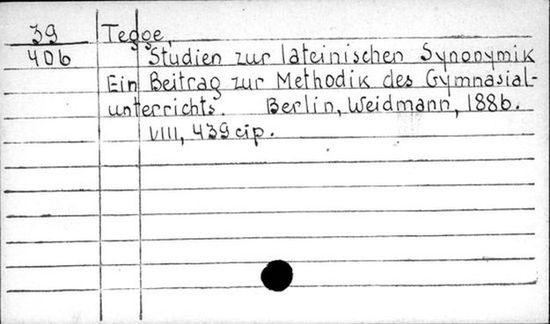 39 Tegge,
406 Studien zur lateinischen Synonymik
Ein Beitrag zur Methodik des Gymnasial-
unterrichts. Berlin, Weidmann, 1886.
VIII, 439 стр.